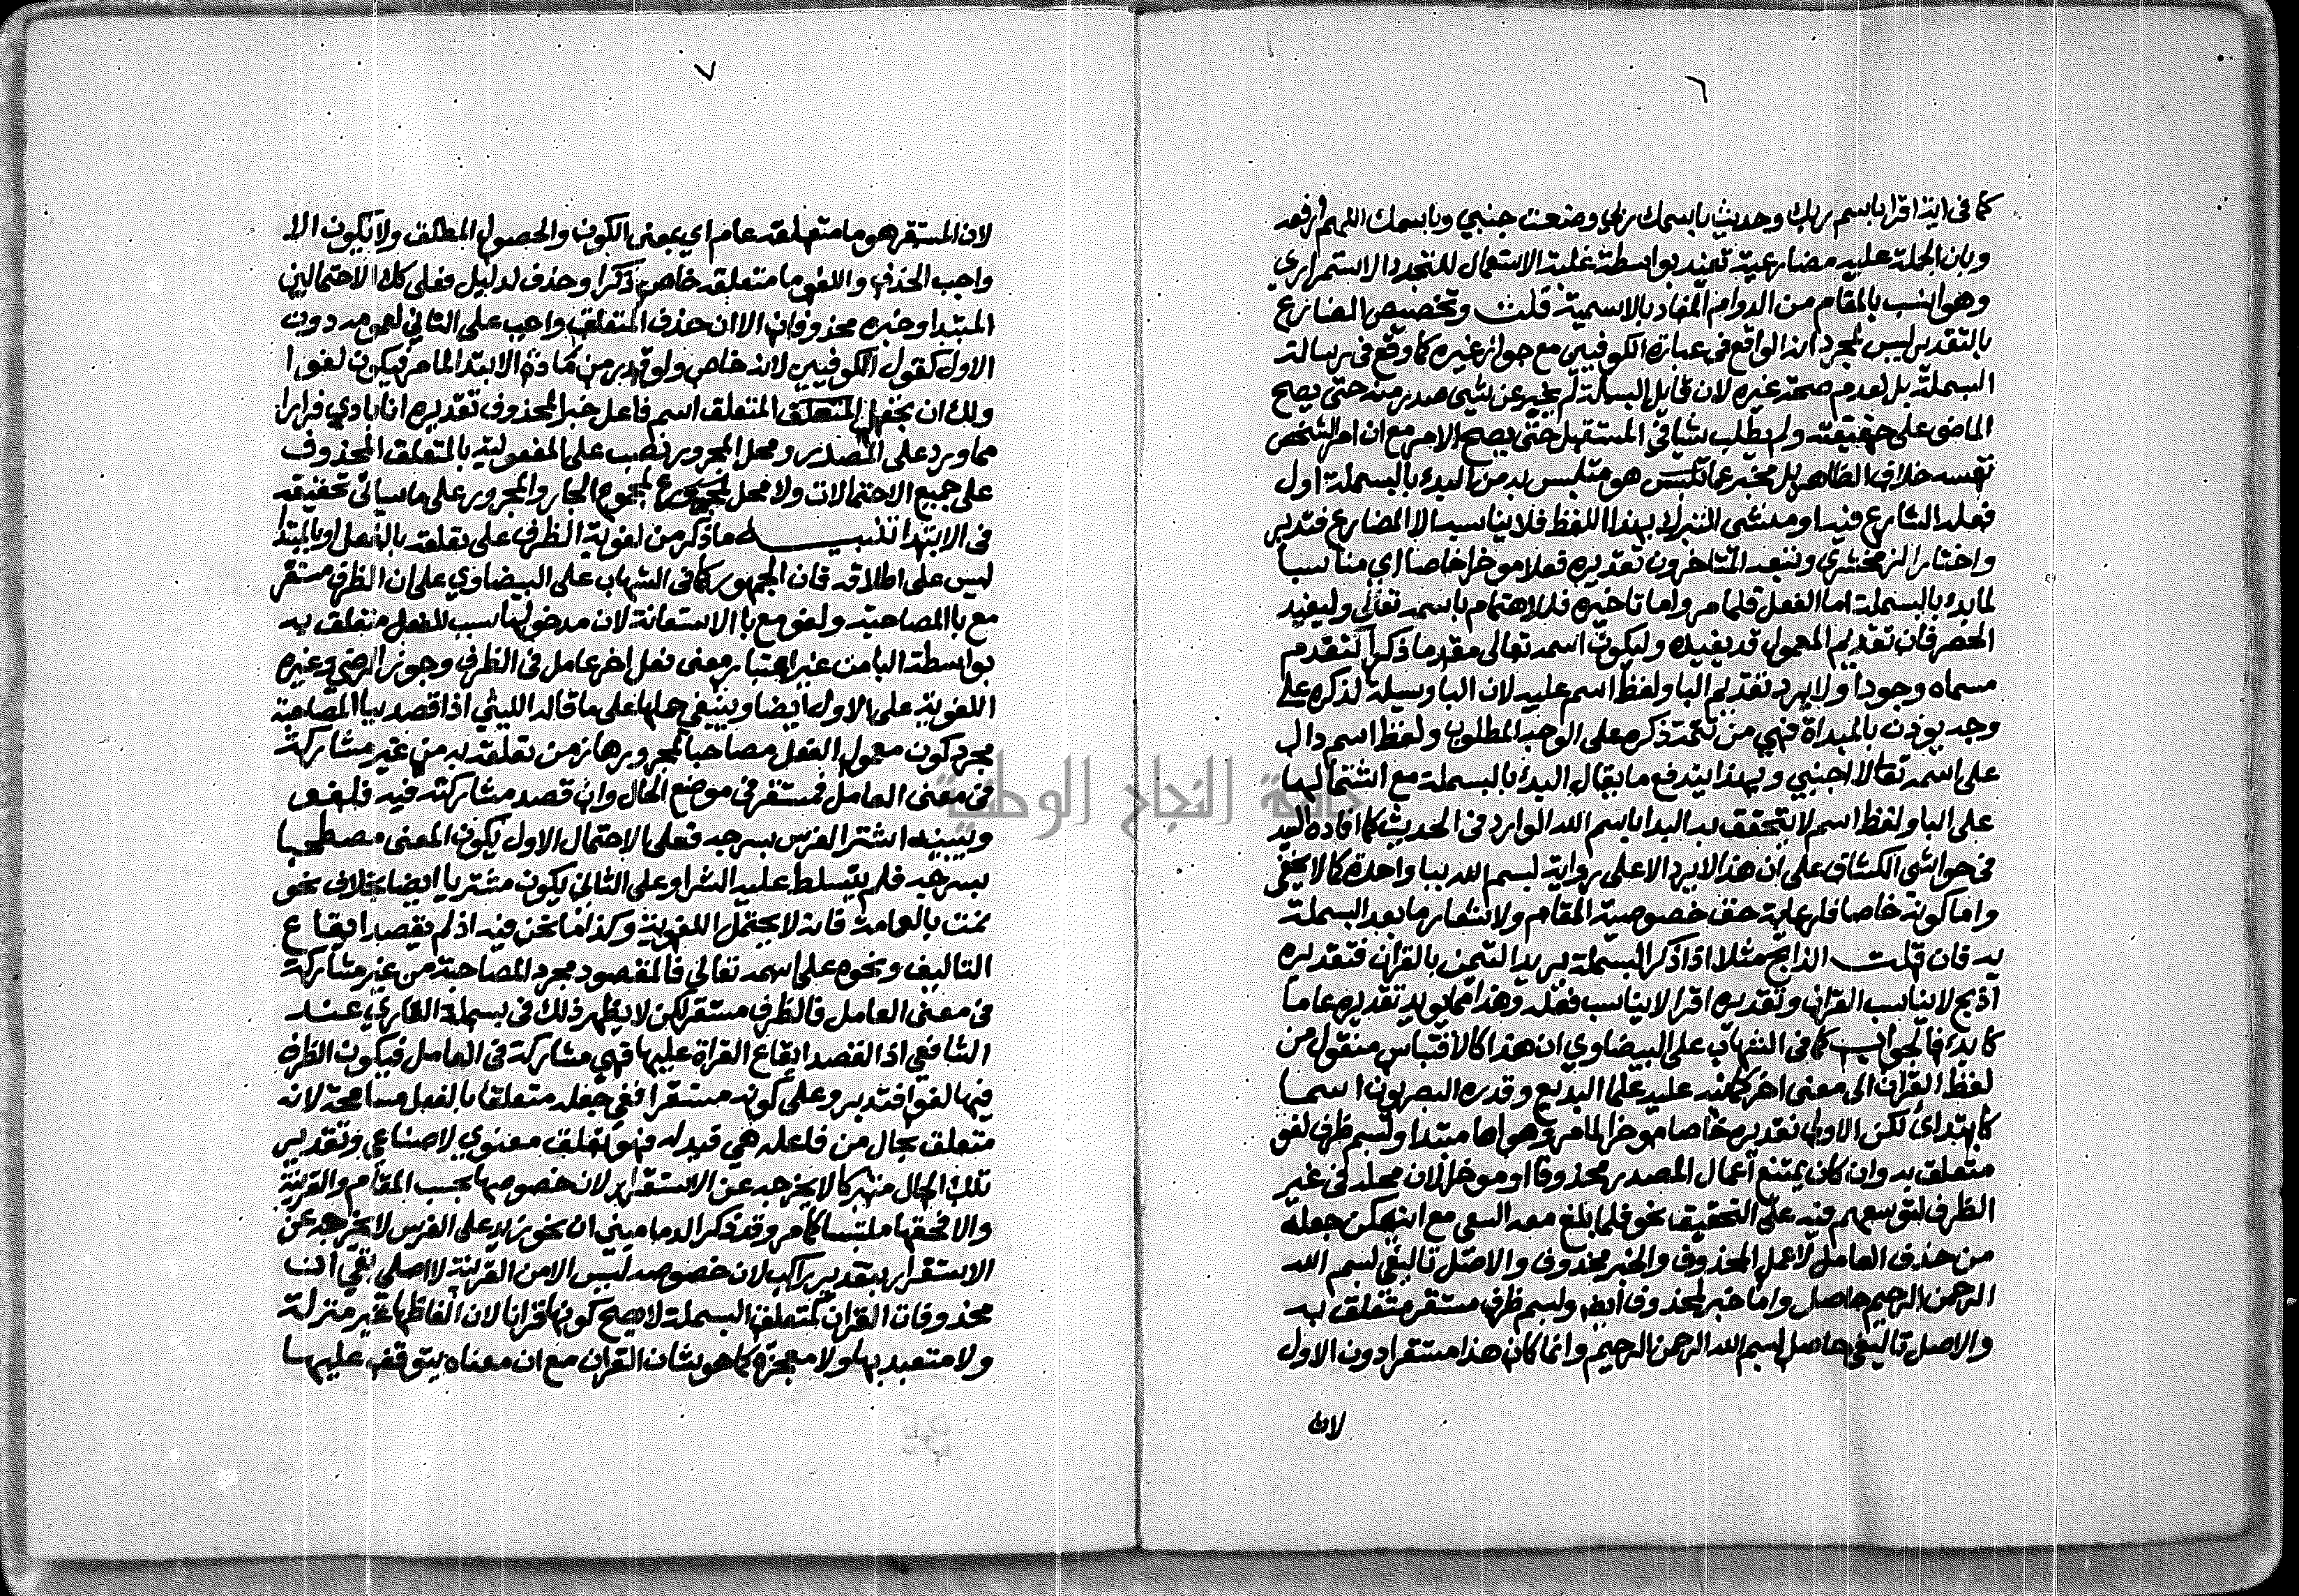 ٦
كما في اية اقرا باسم ربك وحديث باسمك ربي وضعت جنبي وباسمك اللهم ارفعه
وبان الجملة عليه مضارعية تفيد بواسطة غلبة الاستعمال للتجدد الاستمراري
وهو انسب بالمقام من الدوام المفاد بالاسمية قلت وتخصيص المضارع
بالتقدير ليس لمجرد انه الواقع في عبارة الكوفيين مع جواز غيره كما وقع في رسالة
البسملة بل لعدم صحة غيره لان قايل البسملة لم يخبر عن شيء صدر منه حتى يصح
الماضي على حقيقته ولم يطلب شيا في المستقبل حتى يصح الامر مع ان امر الشخص
نفسه خلاف الظاهر بل مخبر عما تلبس هو متلبس به من البدء بالبسملة اول
فعله الشارع فيه او منشى التبرك بهذا اللفظ فلا يناسبه الا المضارع فتدبر
واختار الزمخشري وتبعه المتاخرون تقديره فعلا موخرا خاصا اي مناسبا
لما بدء بالبسملة اما الفعل فلما مر واما تاخيره فللاهتمام باسمه تعالى وليفيد
الحصر فان تقديم المعمول قد يفيده وليكون اسمه تعالى مقدما ذكرا كتقدم
مسماه وجودا ولا يرد تقديم البا ولفظ اسم عليه لان البا وسيلة لذكره على
وجه يوذن بالمبداة فهي من تتمة ذكره على الوجه المطلوب ولفظ اسم دال
على اسمه تعالى لا اجنبي وبهذا يندفع ما يقال البدء بالبسملة مع اشتمالها
على البا ولفظ اسم لا يتحقق به البدا باسم الله الوارد في الحديث كما افاده السيد
في حواشى الكشاف على ان هذا لا يرد الا على رواية لبسم الله ببا واحدة كما لا يخفى
واما كونه خاصا فلرعاية حق خصوصية المقام ولاشعار ما بعد البسملة
به فان قلت الذابح مثلا اذا ذكر البسملة يريد التيمن بالقران فتقديره
اذبح لا يناسب القران وتقديره اقرا لا يناسب فعله وهذا مما يويد تقديره عاما
كابدء فالجواب كما في الشهاب على البيضاوي ان هذا كالاقتباس منقول من
لفظ القران الى معنى اخر كما نبه عليه علما البديع وقدره البصريون اسما
كابتدائ لكن الاولى تقديره خاصا موخرا لما مر وهو اما مبتدا وبسم ظرف لغو
متعلق به وان كان يمتنع اعمال المصدر محذوفا او موخرا لان محله في غير
الظرف لتوسعهم فيه على التحقيق نحو فلما بلغ معه السعى مع انه يمكن جعله
من حذف العامل لا عمل المحذوف والخبر محذوف والاصل تاليفي بسم الله
الرحمن الرحيم حاصل واما خبر لمحذوف ايض وبسم ظرف مستقر متعلق به
والاصل تاليفي حاصل بسم الله الرحمن الرحيم وانما كان هذا مستقرا دون الاول
لان
٧
لان المستقر هو ما متعلقه عام اي بمعنى الكون والحصول المطلق ولا يكون الا
واجب الحذف واللغو ما متعلقه خاص ذكر او حذف لدليل فعلى كلا الاحتمالين
المبتدا وخبره محذوفان الا ان حذف المتعلق واجب على الثاني لعمومه دون
الاول كقول الكوفيين لانه خاص ولو قدر من مادة الابتدا لما مر فيكون لغوا
ولك ان تجعل المتعلق المتعلق اسم فاعل خبرا لمحذوف تقديره انا بادي فرارا
مما ورد على المصدر ومحل المجرور نصب على المفعولية بالمتعلق المحذوف
على جميع الاحتمالات ولا محل لمجموع الجار والمجرور على ما سيأتي تحقيقه
في الابتدا تنبيه ما ذكر من لغوية الظرف على تعلقه بالفعل او بالمبتدا
ليس على اطلاقه فان الجمهور كما في الشهاب على البيضاوي على ان الظرف مستقر
مع با المصاحبة ولغو مع با الاستعانة لان مدخولها سبب للفعل متعلق به
بواسطة البا من غير اعتبار معنى فعل اخر عامل في الظرف وجوز الرضي وغيره
اللغوية على الاول ايضا وينبغي حملها على ما قاله الليثي اذا قصد ببا المصاحبة
مجرد كون معمول الفعل مصاحبا لمجرورها زمن تعلقه به من غير مشاركة
في معنى العامل فمستقر في موضع الحال وان قصد مشاركته فيه فلغو
ويبينه اشتر الفرس بسرجه فعلى الاحتمال الاول يكون المعنى مصطحبا
بسرجه فلم يتسلط عليه الشرا وعلى الثاني يكون مشتريا ايضا بخلاف نحو
نمت بالعمامة فانه لا يحتمل اللغوية وكذا ما نحن فيه اذ لم يقصد ايقاع
التاليف ونحوه على اسمه تعالى فالمقصود مجرد المصاحبة من غير مشاركة
في معنى العامل فالظرف مستقر لكن لا يظهر ذلك في بسملة القاري عند
الشافعي اذ القصد ايقاع القراة عليها فهي مشاركة في العامل فيكون الظرف
فيها لغوا فتدبر وعلى كونه مستقرا ففي جعله متعلقا بالفعل مسامحة لانه
متعلق بحال من فاعله هي قيد له فهو تعلق معنوي لا صناعي وتقدير
تلك الحال متبركا لا يخرجه عن الاستقرار لان خصوصها بحسب المقام والقرينة
والا فحقها ملتبسا كما مر وقد ذكر الدماميني ان نحو زيد على الفرس لا يخرجه عن
الاستقرار بتقدير راكب لان خصوصه ليس الا من القرينة لا اصلي بقي ان
محذوفات القران كمتعلق البسملة لا يصح كونها قرانا لان الفاظها غير منزلة
ولا متعبد بها ولا معجزة كما هو شان القران مع ان معناه يتوقف عليها